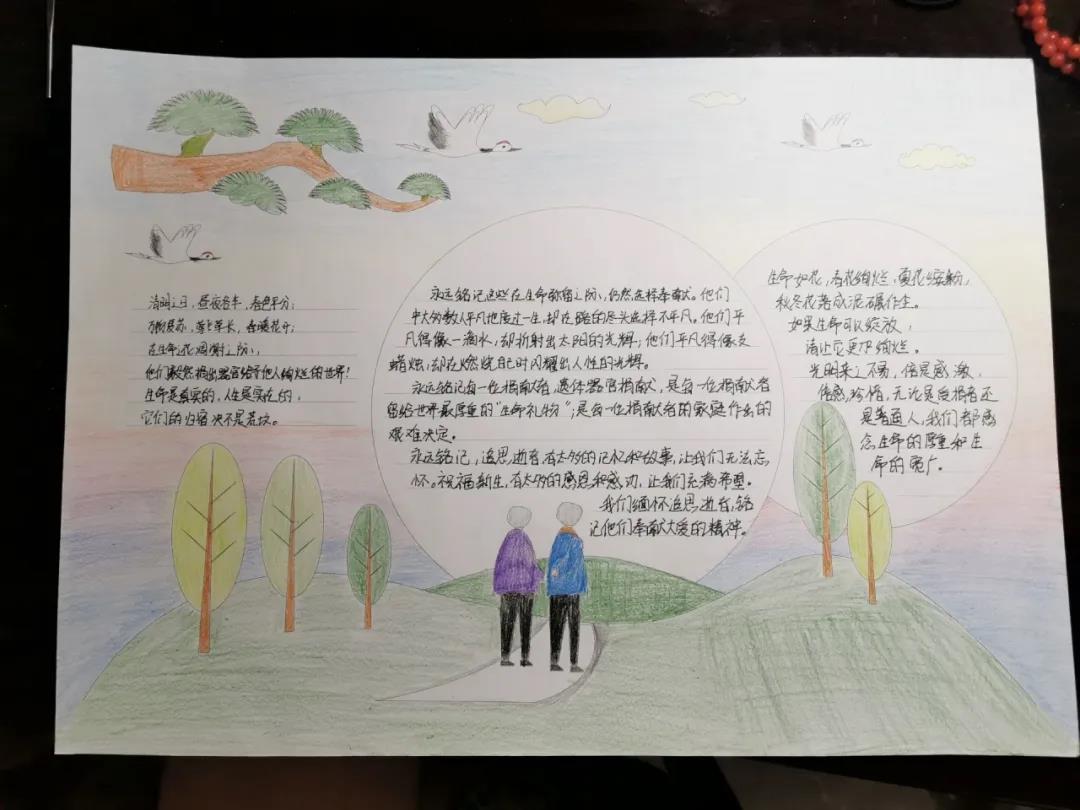 清明之日，昼夜各半，春色平分；
万物复苏，草长，春暖花开；
在生命花凋谢之际，
他们毅然捐出器官给予他人绚烂的世界！
生命是真实的，人性是实在的，
它们的归宿决不是荒坟。
永远铭记这些在生命弥留之际，仍然选择奉献。他们
中大多数人平凡地度过一生，却在路的尽头选择不平凡。他们平
凡得像一滴水，却折射出太阳的光辉；他们平凡得像支
蜡烛，却在燃烧自己时闪耀出人性的光辉。
永远铭记每一位捐献者，遗体器官捐献，是每一位捐献者
留给世界最厚重的“生命礼物”；是每一位捐献者的家庭作出的
艰难决定。
永远铭记，追思逝者，有太多的记忆和故事，让我们无法忘
怀。祝福新生，有太多的感恩和感动，让我们充满希望。
我们缅怀追思逝者，铭
记他们奉献大爱的精神。
生命如花，春花绚烂，夏花缤纷，
秋冬花落成泥碾作尘。
如果生命可以绽放，
请让它更加绚烂。
光明来之不易，倍感感激，
倍感珍惜，无论是受捐者还
是普通人，我们都感
念生命的厚重和生
命的宽广。